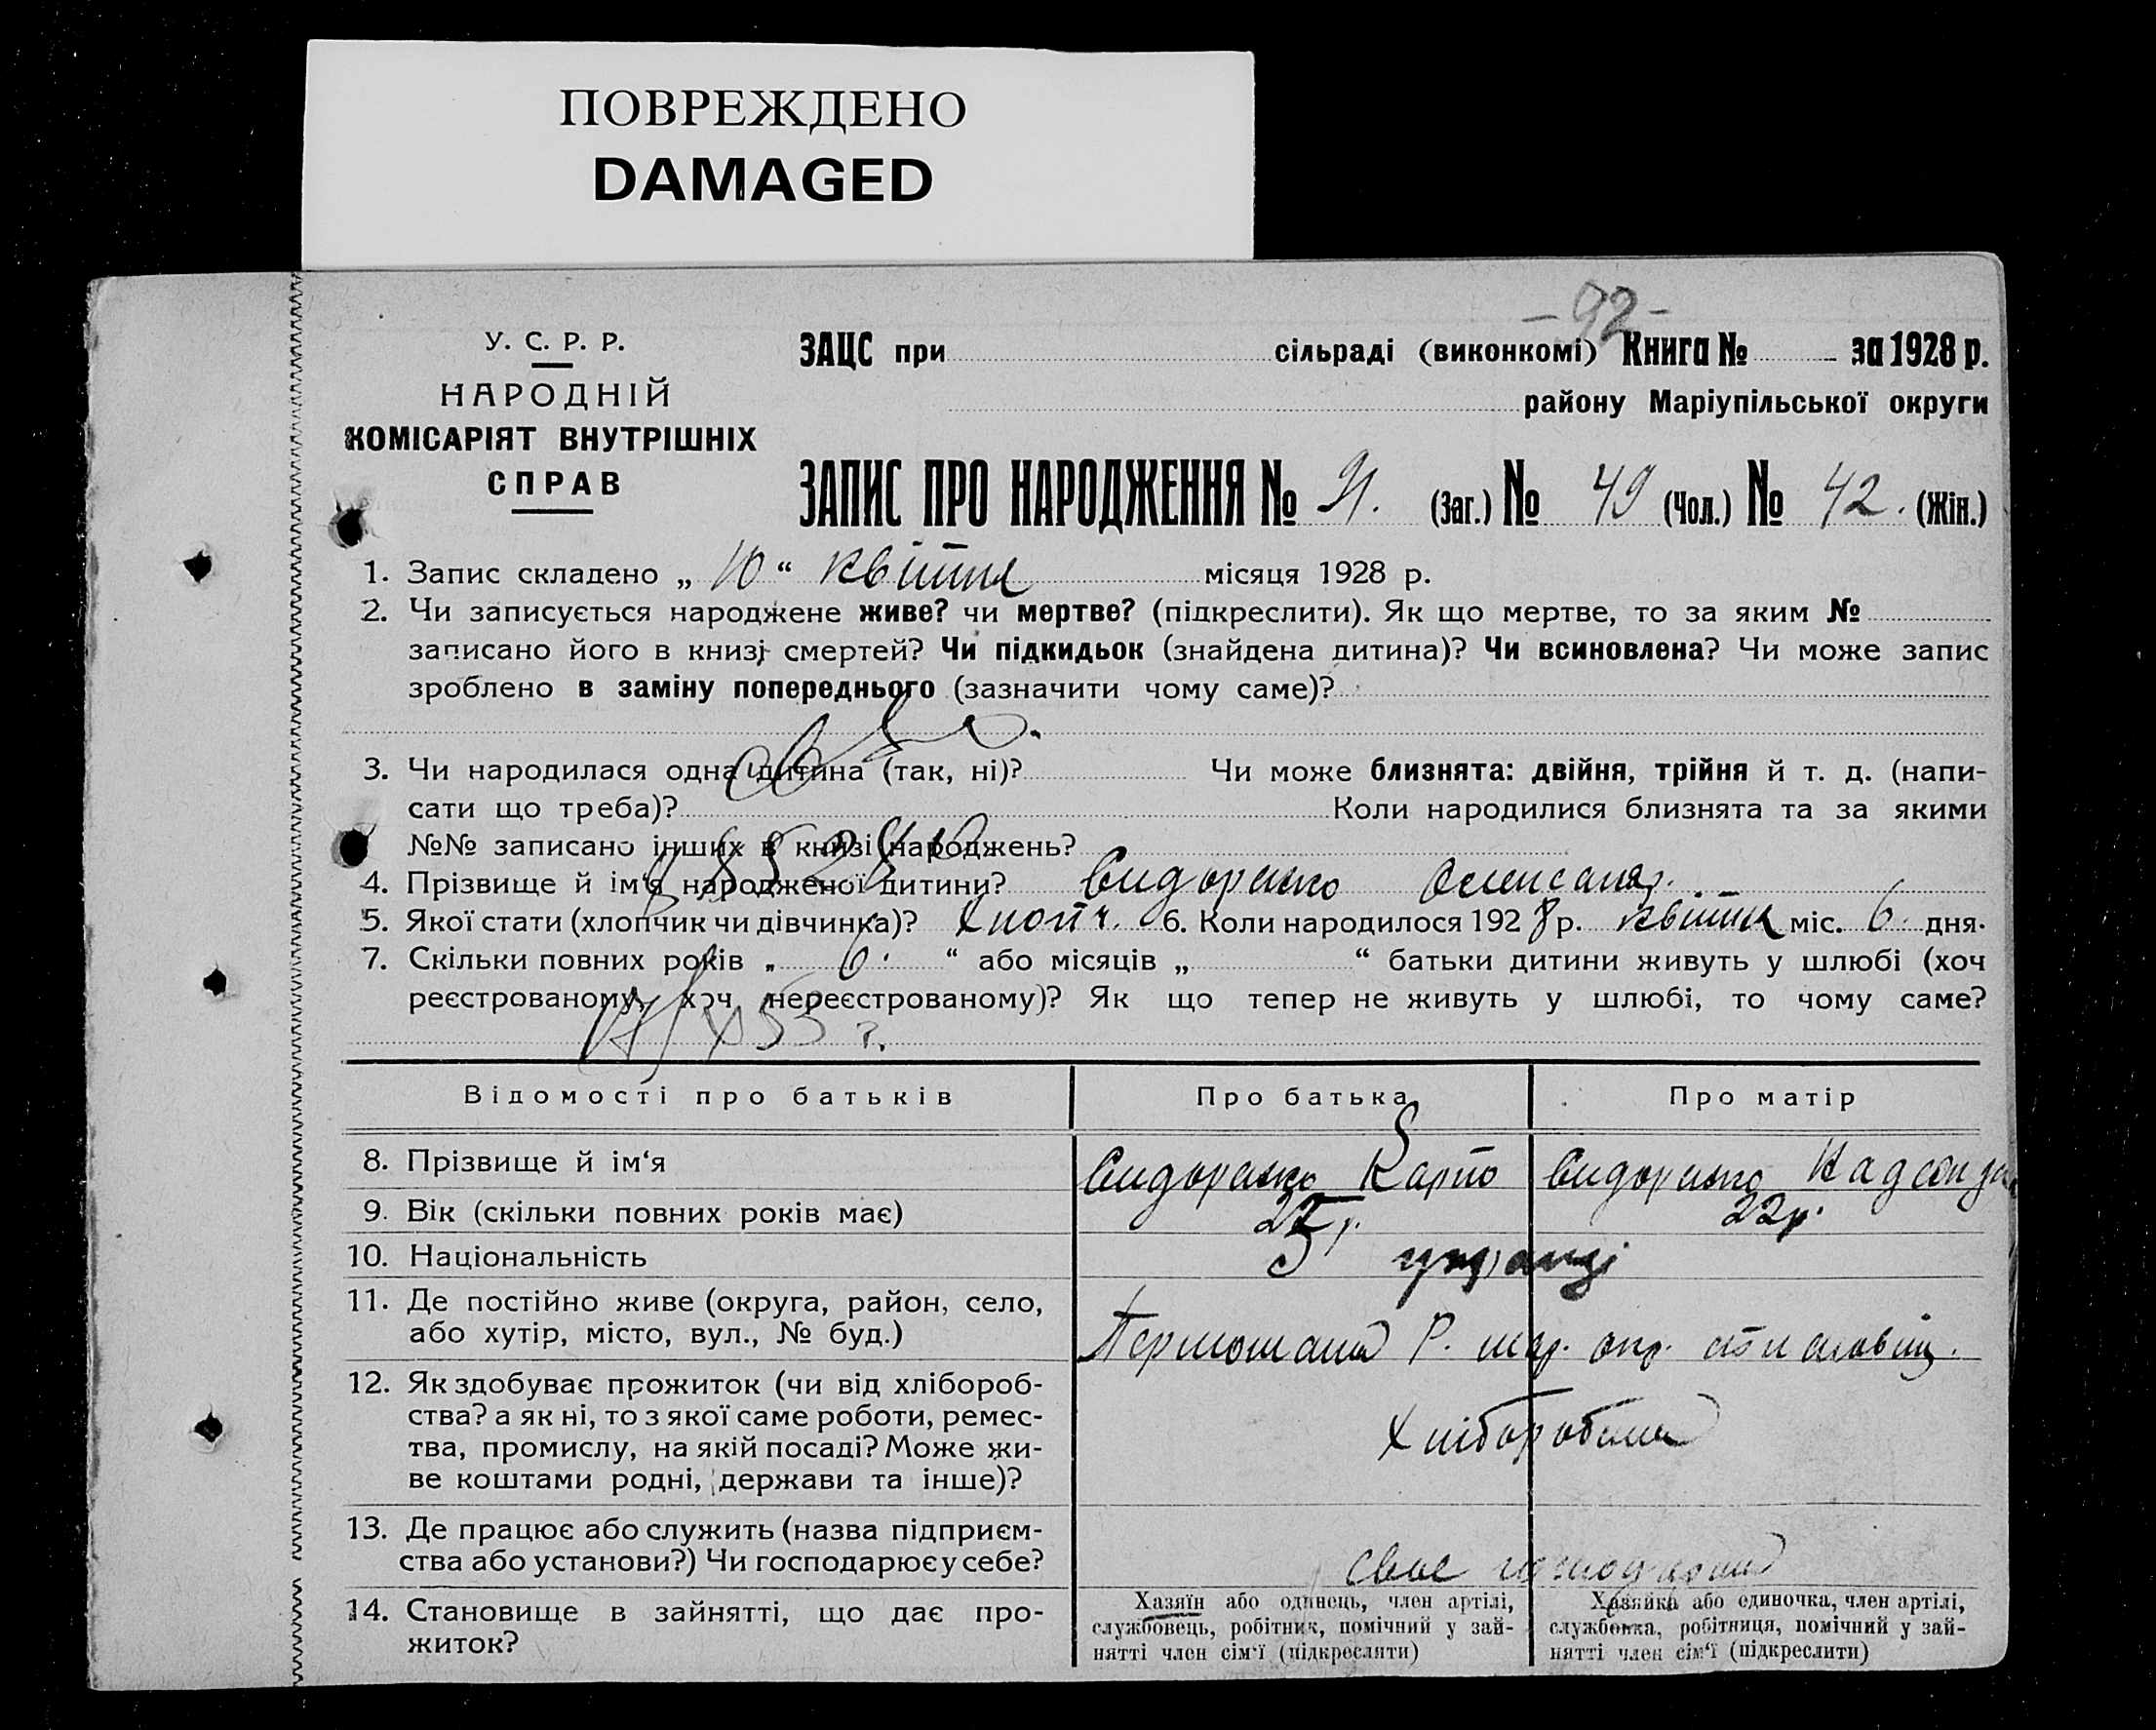 ПОВРЕЖДЕНО
DAMAGED
-92-
У. С. Р. Р.
НАРОДНІЙ
КОМІСАРІЯТ ВНУТРІШНІХ
СПРАВ
ЗАЦС при сільраді (виконкомі) Книга № за 1928 р.
району Маріупільської округи
ЗАПИС ПРО НАРОДЖЕННЯ № 91. (Заг.) № 49 (Чол.) № 42. (Жін.)
1. Запис складено „ 10 “ квітня місяця 1928 р.
2. Чи записується народжене живе? чи мертве? (підкреслити). Як що мертве, то за яким №
записано його в книзі смертей? Чи підкидьок (знайдена дитина)? Чи всиновлена? Чи може запис
зроблено в заміну попереднього (зазначити чому саме)?
3. Чи народилася одна дитина (так, ні)? Чи може близнята: двійня, трійня й т. д. (напи-
сати що треба)? Коли народилися близнята та за якими
№№ записано інших в книзі народжень?
4. Прізвище й ім‘я народженої дитини? Сидоренко Олександр.
5. Якої стати (хлопчик чи дівчинка)? Хлопч. 6. Коли народилося 1928 р. квітня міс. 6. дня.
7. Скільки повних років „ 6. “ або місяців „ “ батьки дитини живуть у шлюбі (хоч
реєстрованому, хоч нереєстрованому)? Як що тепер не живуть у шлюбі, то чому саме?
Відомості про батьків Про батька Про матір
8. Прізвище й ім‘я Сидоренко Карпо Сидоренко
9. Вік (скільки повних років має) 22р.
10. Національність українці
11. Де постійно живе (округа, район, село,
або хутір, місто, вул., № буд.)
Р. мар. окр.
12. Як здобуває прожиток (чи від хлібороб-
ства? а як ні, то з якої саме роботи, ремес-
тва, промислу, на якій посаді? Може жи-
ве коштами родні, держави та інше)?
Хліборобства
13. Де працює або служить (назва підприєм-
ства або установи?) Чи господарює у себе?
своє
14. Становище в зайнятті, що дає про-
житок?
Хазяїн або одинець, член артілі,
службовець, робітник, помічний у зай-
нятті член сім‘ї (підкреслити)
Хазяйка або одиночка, член артілі,
службовка, робітниця, помічний у зай-
нятті член сім‘ї (підкреслити)